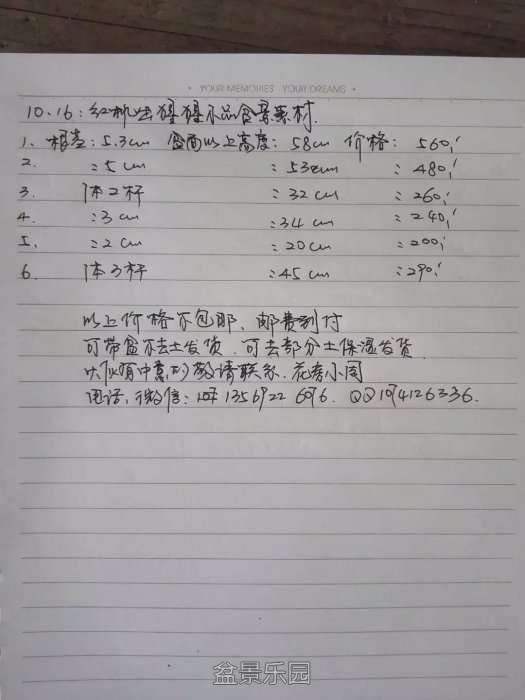 • YOUR MEMORIES YOUR DREAMS •
10.16: 红机生猩猩小品盆景素材.
1. 根茎: 5.3cm 盆面以上高度: 58cm 价格: 560,
2. : 5cm : 53cm : 480,
3. 1本2杆 : 32cm : 260,
4. : 3cm : 34cm : 240,
5. : 2cm : 20cm : 200,
6. 1本3杆 : 45cm : 290,
以上价格不包邮、邮费到付
可带盆不去土发货. 可去部分土保湿发货.
以他有中意的敬请联系. 花春小周
电话, 微信: QQ
盆景乐园